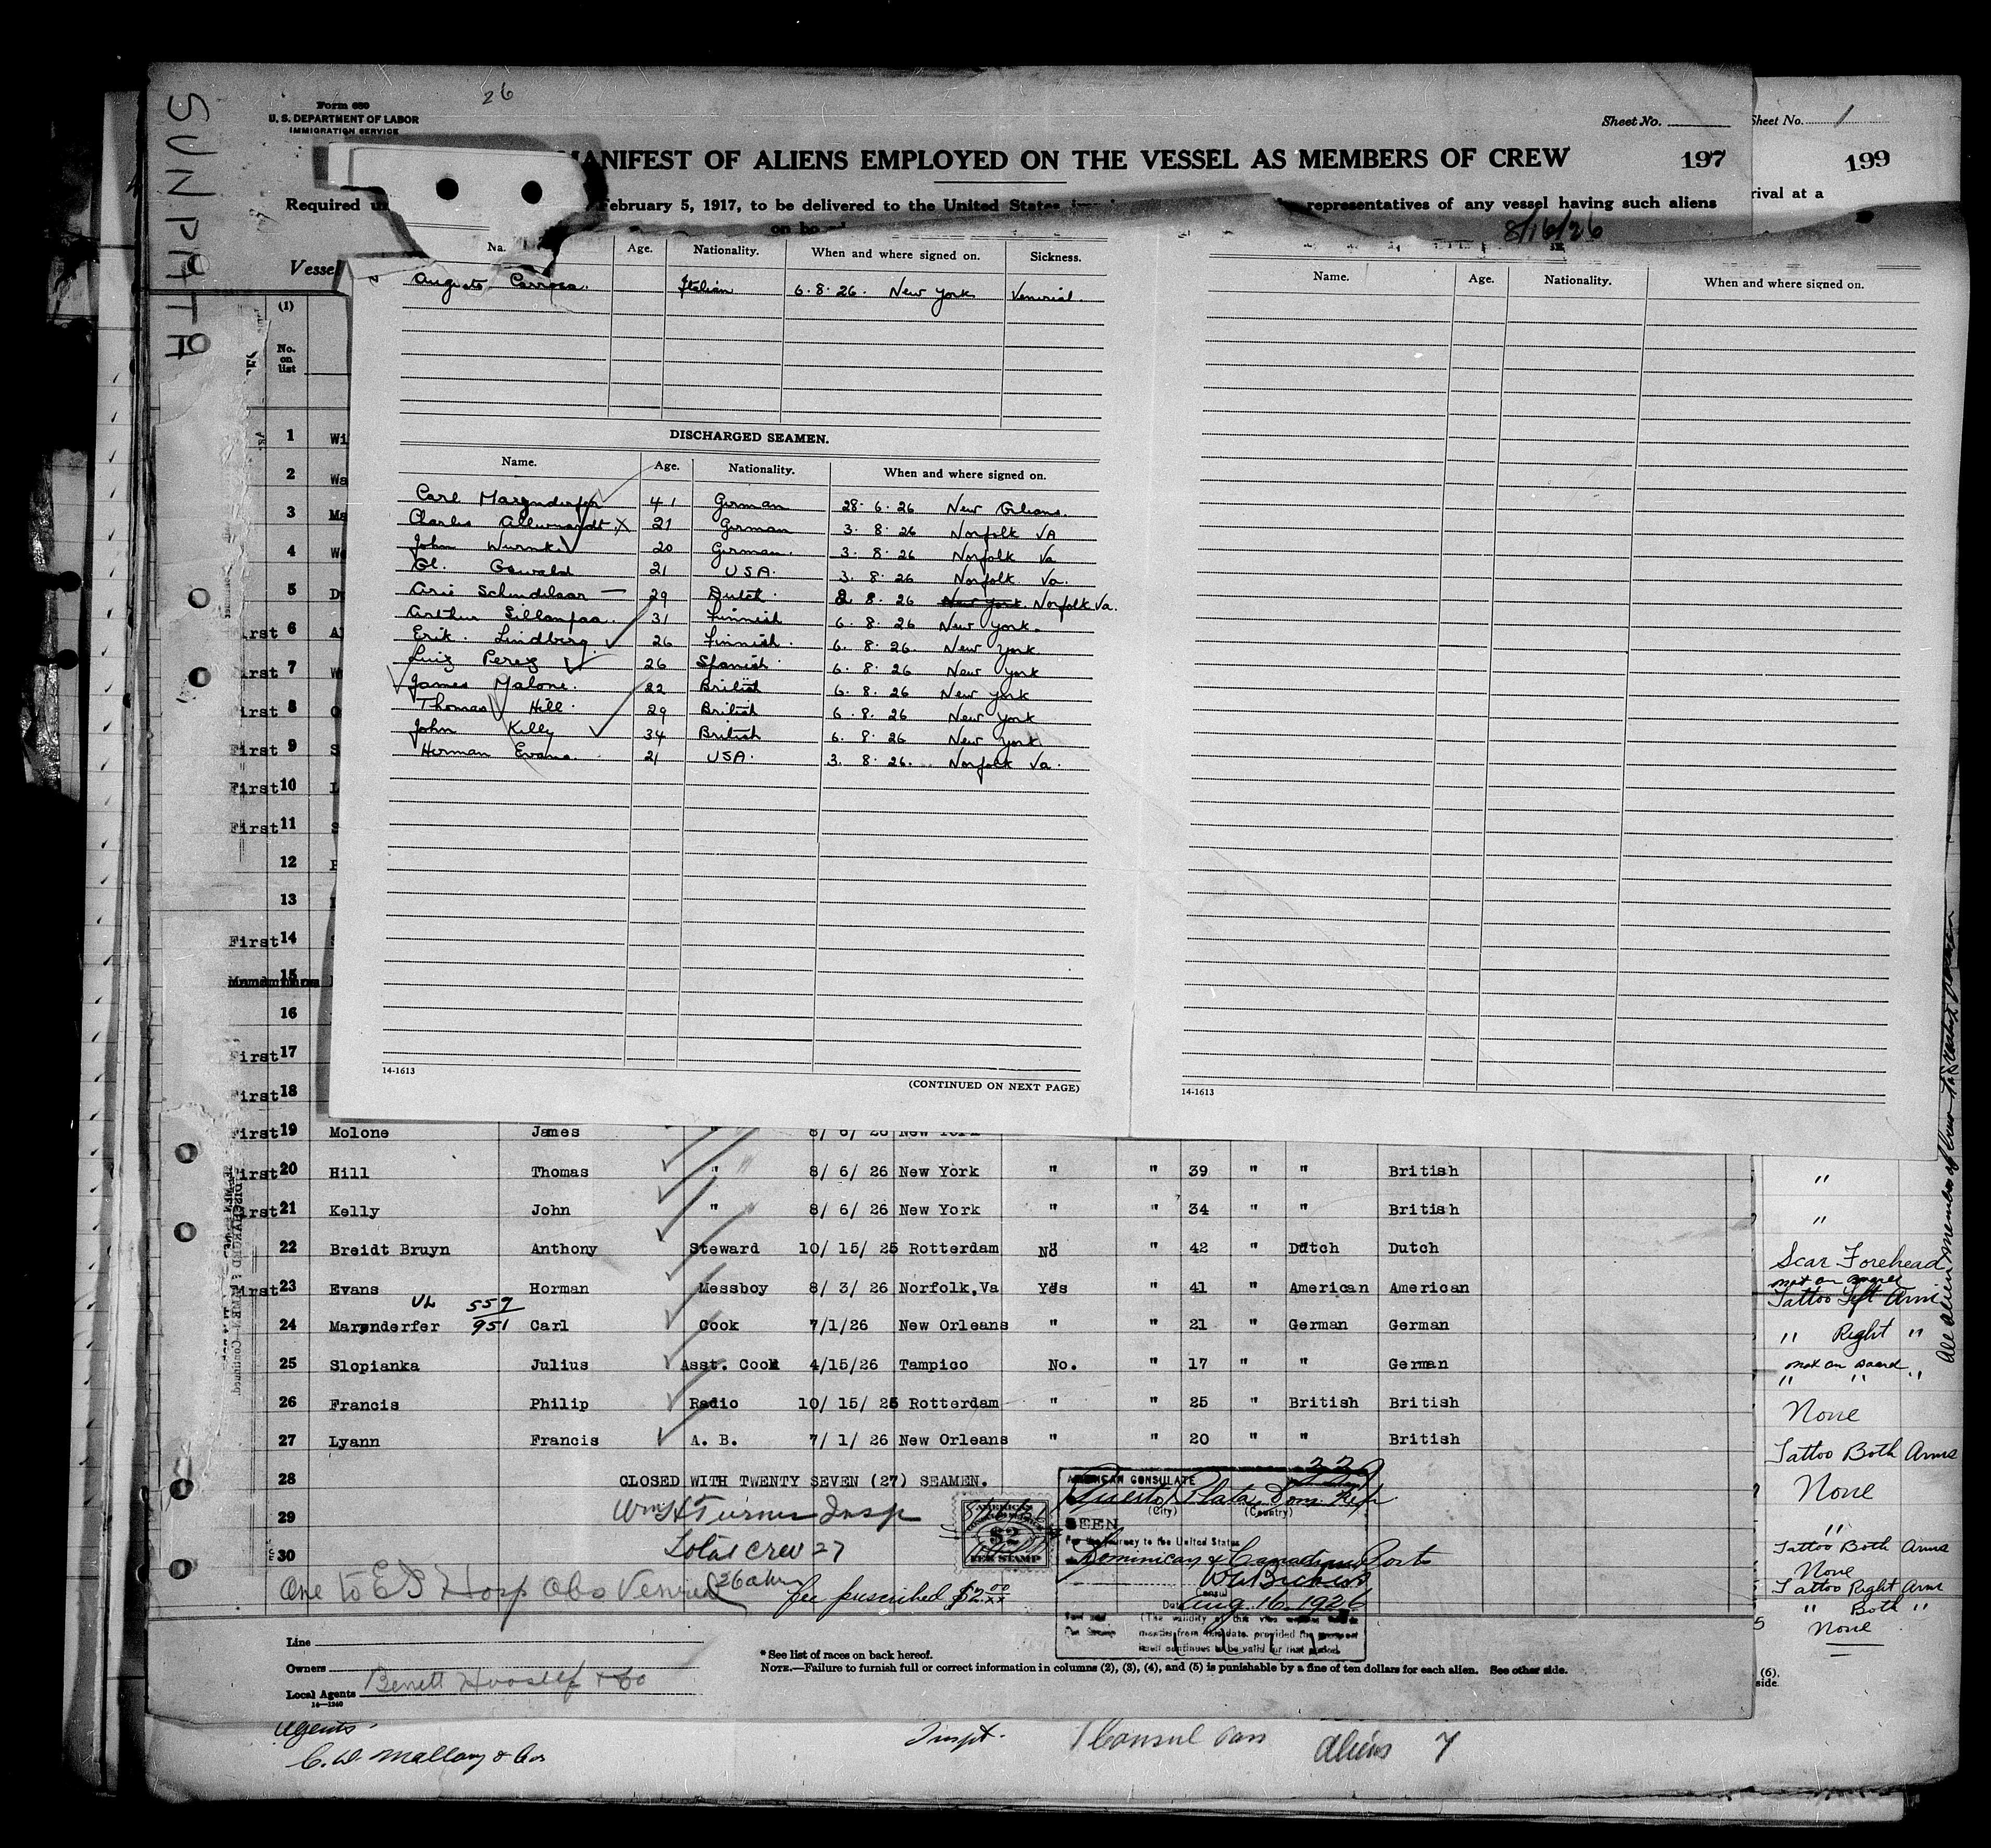 SUNPATH
26
Form 680
U. S. DEPARTMENT OF LABOR
IMMIGRATION SERVICE
Sheet No.
Sheet No. 1
MANIFEST OF ALIENS EMPLOYED ON THE VESSEL AS MEMBERS OF CREW
197
199
Required
February 5, 1917, to be delivered to the United States
representatives of any vessel having such aliens
rival at a
8/16/26
Vessel
(1)
No. on list
Age. Nationality. When and where signed on. Sickness.
Italian 6. 8. 26. New York Venerial.
DISCHARGED SEAMEN.
Name. Age. Nationality. When and where signed on.
Carl Marynderfer 41 German 28. 6. 26 New Orleans.
Charles 21 German 3. 8. 26 Norfolk VA
John 20 German. 3. 8. 26 Norfolk Va
Oswald 21 USA. 3. 8. 26 Norfolk Va.
Arie Schindelaar 29 Dutch 8. 26 New York. Norfolk Va.
Arthur Sillanpaa. 31 Finnish 6. 8. 26 New York.
Erik. Lindberg. 26 Finnish. 6. 8. 26. New York.
Luiz Perez 26 Spanish 6. 8. 26 New York
James Malone. 22 British 6. 8. 26 New York
Thomas Hill. 29 British 6. 8. 26 New York
John Killy 34 British 6. 8. 26 New York.
Herman Evans. 21 USA. 3. 8. 26. Norfolk Va.
14-1613
(CONTINUED ON NEXT PAGE)
Name. Age. Nationality. When and where signed on.
14-1613
1 Wi
2 Wa
3 Ma
4
5
First 6
First 7
First 8
First 9
First 10
First 11
12
13
First 14
15
16
First 17
First 18
First 19 Molone James 8/ 6/ 26 New York
First 20 Hill Thomas " 8/ 6/ 26 New York " " 39 " " British
First 21 Kelly John " 8/ 6/ 26 New York " " 34 " " British
22 Breidt Bruyn Anthony Steward 10/ 15/ 25 Rotterdam No " 42 " Dutch Dutch
First 23 Evans Horman Messboy 8/ 3/ 26 Norfolk,Va Yes " 41 " American American
VL 559
951
24 Marynderfer Carl Cook 7/1/26 New Orleans " " 21 " German German
25 Slopianka Julius Asst. Cook 4/15/26 Tampico No. " 17 " " German
26 Francis Philip Radio 10/ 15/ 25 Rotterdam " " 25 " British British
27 Lyann Francis A. B. 7/ 1/ 26 New Orleans " " 20 " " British
28 CLOSED WITH TWENTY SEVEN (27) SEAMEN.
29 Wm H Turner Insp
30 Total crew 27
One to E I Hosp Obs
fee prescribed $2.00
AMERICAN
$2
FEE STAMP
AMERICAN CONSULATE
Puerto Plata, Dom. Rep.
(City) (Country)
SEEN
For the journey to the United States
Dominican & Canadian Ports
Consul
Date Aug. 16. 1926
(The validity of this visa
months from this date, provided the passport
itself continues to be valid for that period.
"
"
Scar Forehead
Tattoo Left Arm
" Right "
not on board
" " "
None
Tattoo Both Arms
None
"
Tattoo Both Arms
None
Tattoo Right Arm
" Both "
None
Line
Owners
Local Agents
14-1240
* See list of races on back hereof.
NOTE.—Failure to furnish full or correct information in columns (2), (3), (4), and (5) is punishable by a fine of ten dollars for each alien. See other side.
(6).
side.
Agents
C. D. Mallory & Co
Aliens 7